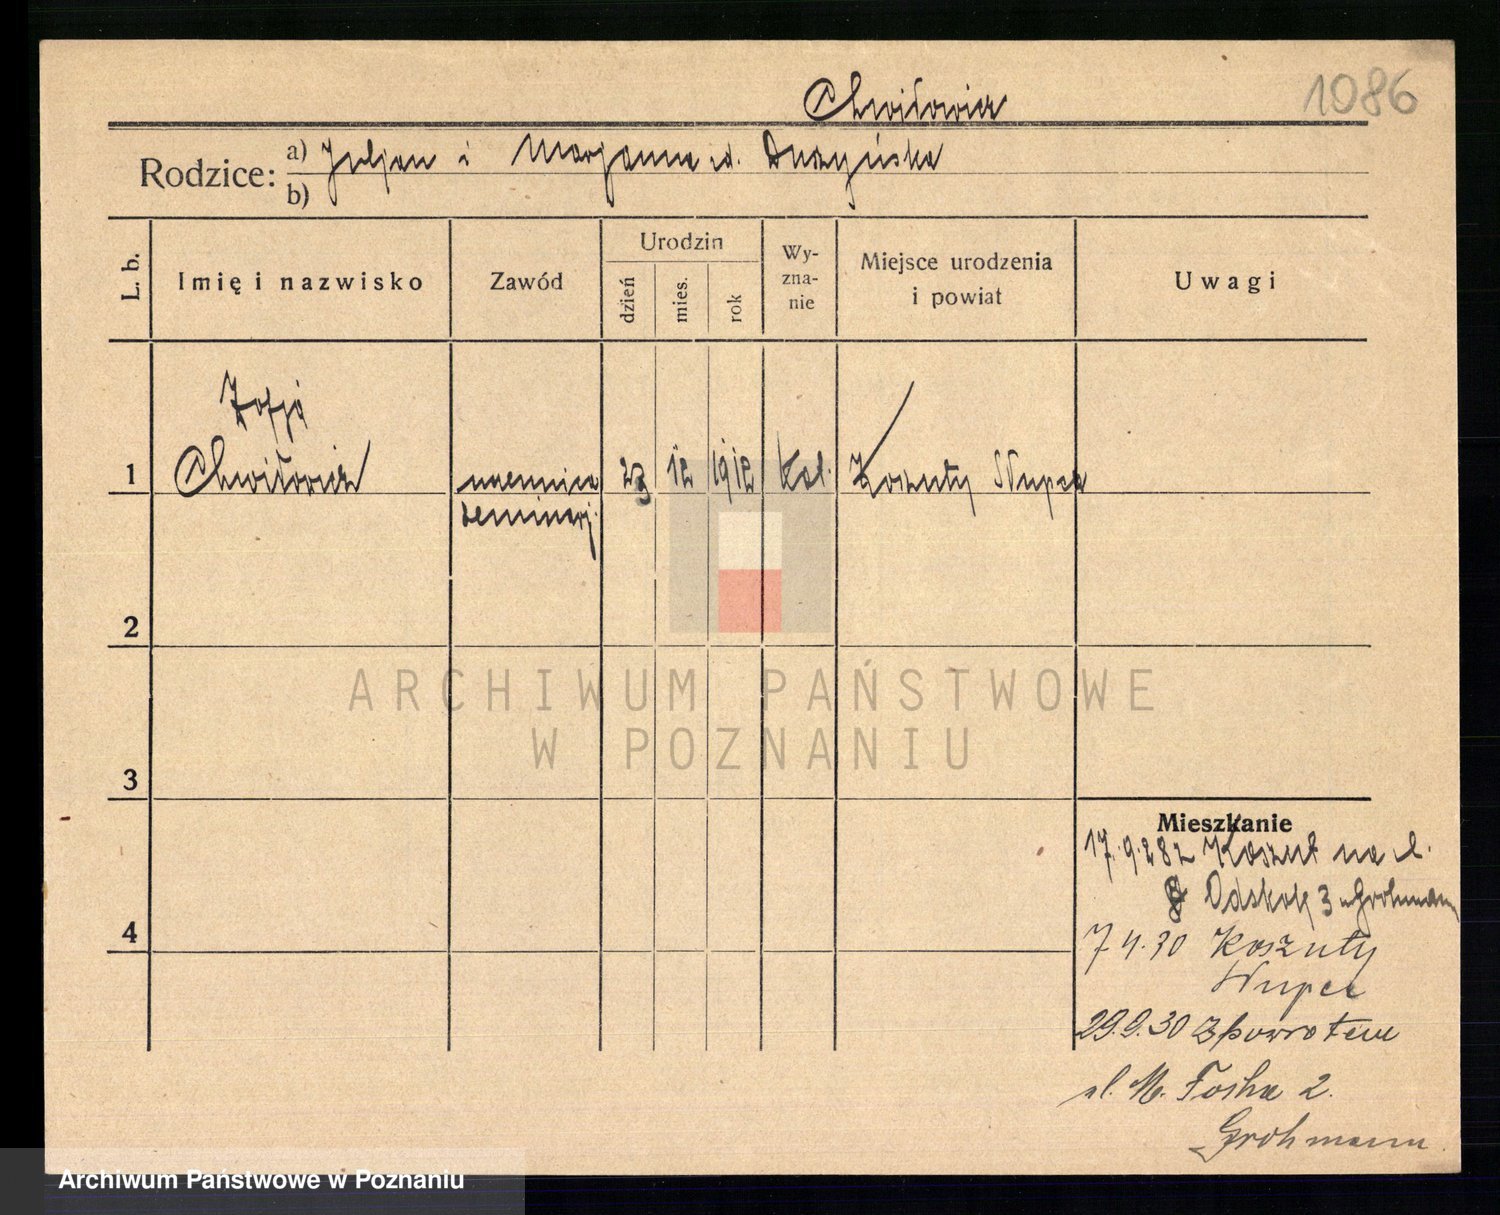 Chwiłowicz
1086
Rodzice: a) Juljan i Marjanna
b)
L. b.
Imię i nazwisko
Zawód
Urodzin
dzień
mies.
rok
Wy-
zna-
nie
Miejsce urodzenia
i powiat
Uwagi
Zofja
1 Chwiłowicz uczennica 23 12 1912 kat. Koszuty Słupca
seminarj.
2
ARCHIWUM PAŃSTWOWE
W POZNANIU
3
Mieszkanie
17.9.28 z Koszut na ul.
3 Grohmann
4
7 4.30 Koszuty
Słupca
29.9.30 z powrotem
ul. M. Focha 2.
Grohmann
Archiwum Państwowe w Poznaniu